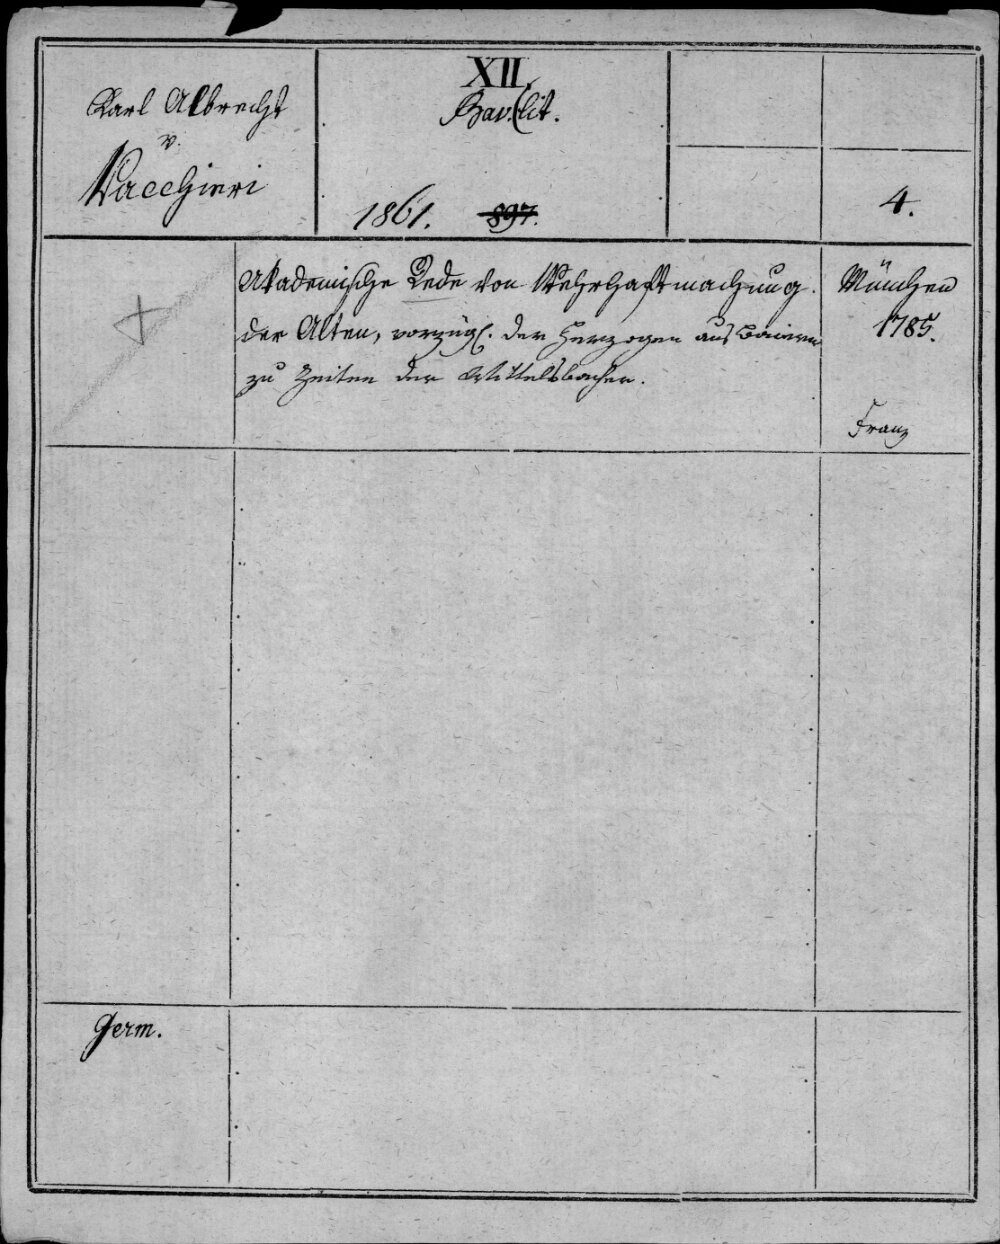 Karl Albrecht
v.
Vacchieri
XII.
Bav. Lit.
1861. 897.
4.
Akademische Rede von Wehrhaftmachung
der Alten, vorzügl. der Herzogen aus Baiern
zu Zeiten der Wittelsbacher.
München
1785.
Franz
Germ.